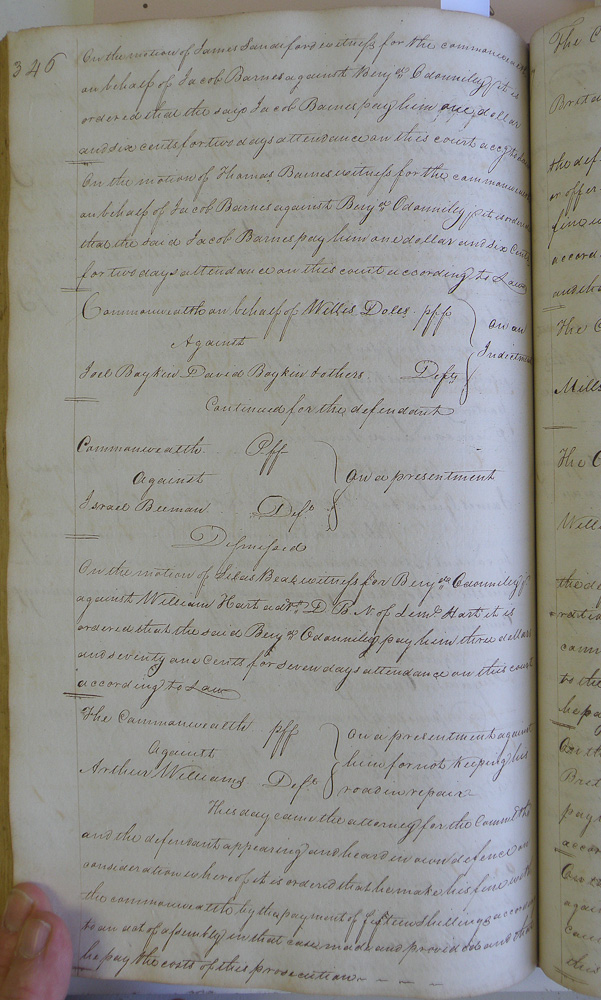 346
On the motion of James Sandiford witness for the commonwealth
on behalf of Jacob Barnes against Benj. Odonniley it is
ordered that the said Jacob Barnes pay him one dollar
and six cents for two days attendance on this court accg to Law
On the motion of Thomas Barnes witness for the commonwealth
on behalf of Jacob Barnes against Benj. Odonniley it is ordered
that the said Jacob Barnes pay him one dollar and six Cents
for two days attendance on this court according to Law
Commonwealth on behalf of Willis Doles plff
Against
Joel Boykin David Boykin & others Defts
on an
Indictment
Continued for the defendant
Commonwealth Plff
Against
Israel Beeman Deft
on a presentment
Dismissed
On the motion of Silas Beal witness for Benj. Odonniley
against William Hart adr. D. B. N. of Lem. Hart it is
ordered that the said Benj. Odonniley pay him three dollars
and seventy one Cents for seven days attendance on this court
according to Law
The Commonwealth plff
Against
Arthur Williams Deft
on a presentment against
him for not keeping his
road in repair
This day came the attorney for the Commlth
and the defendant appearing and heard in own defence on
consideration whereof it is ordered that he make his fine with
the commonwealth by the payment of fifteen shillings according
to an act of assembly in that case made and provided and that
he pay the costs of this prosecution
The C
Brita
the def
or offer
fine
accord
The C
Mills
The C